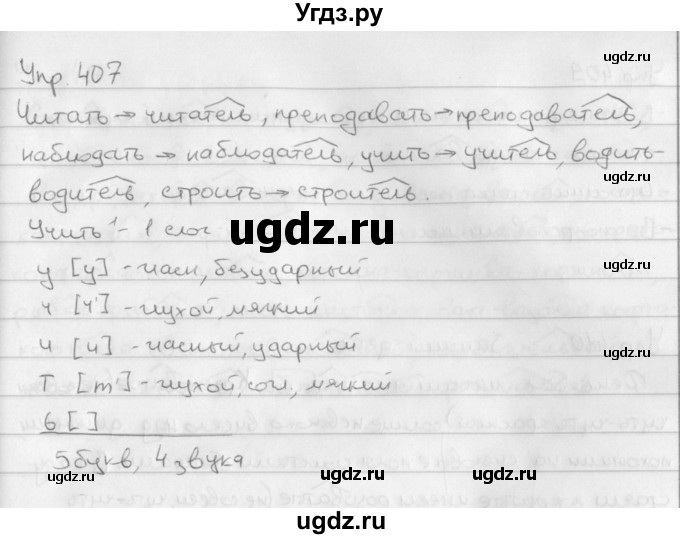 Угдз.ру
ugdz.ru
Упр. 407
ugdz.ru
Читать → читатель, преподавать → преподаватель,
наблюдать → наблюдатель, учить → учитель, водить-
ugdz.ru
водитель, строить → строитель.
Учить - 1 слог
ugdz.ru
у [у] - гласн, безударный
ч [ч'] - глухой, мягкий
и [и] - гласный, ударный
ugdz.ru
т [т'] - глухой, согл, мягкий
ь [ ]
5 букв, 4 звука
ugdz.ru
ugdz.ru
ugdz.ru